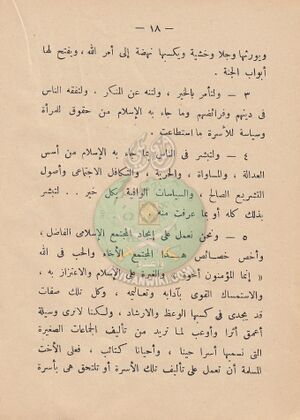 — ١٨ —
ويورثها وجلا وخشية ويكسبها نهضة إلى أمر الله ، ويفتح لها
أبواب الجنة .
٣ — ولتأمر بالخير ، ولتنه عن المنكر . ولتفقه الناس
في دينهم وفرائضهم وما جاء به الإسلام من حقوق للمرأة
وسياسة للأسرة ما استطاعت .
٤ — ولتبشر في الناس بما جاء به الإسلام من أسس
العدالة ، والمساواة ، والحرية ، والتكافل الاجتماعى وأصول
التشريع الصالح ، والسياسات الوافية بكل خير .. لتبشر
بذلك كله أو بما عرفت منه
٥ — ونحن نعمل على إيجاد المجتمع الإسلامى الفاضل ،
وأخص خصائص هذا المجتمع الأخاء والحب فى الله
« إنما المؤمنون أخوة » والغيرة على الإسلام والاعتزاز به ،
والاستمساك القوى بآدابه وتعاليمه ، وكل تلك صفات
قد يجدى فى كسبها الوعظ والارشاد ، ولكننا لانرى وسيلة
أعمق أثرا وأوعب لما تريد من تأليف الجماعات الصغيرة
التى نسميها أسرا حينا ، وأحيانا كتائب ، فعلى الأخت
المسلمة أن تعمل على تأليف تلك الأسرة أو تلتحق هى بأسرة
IKHWANWIKI.COM